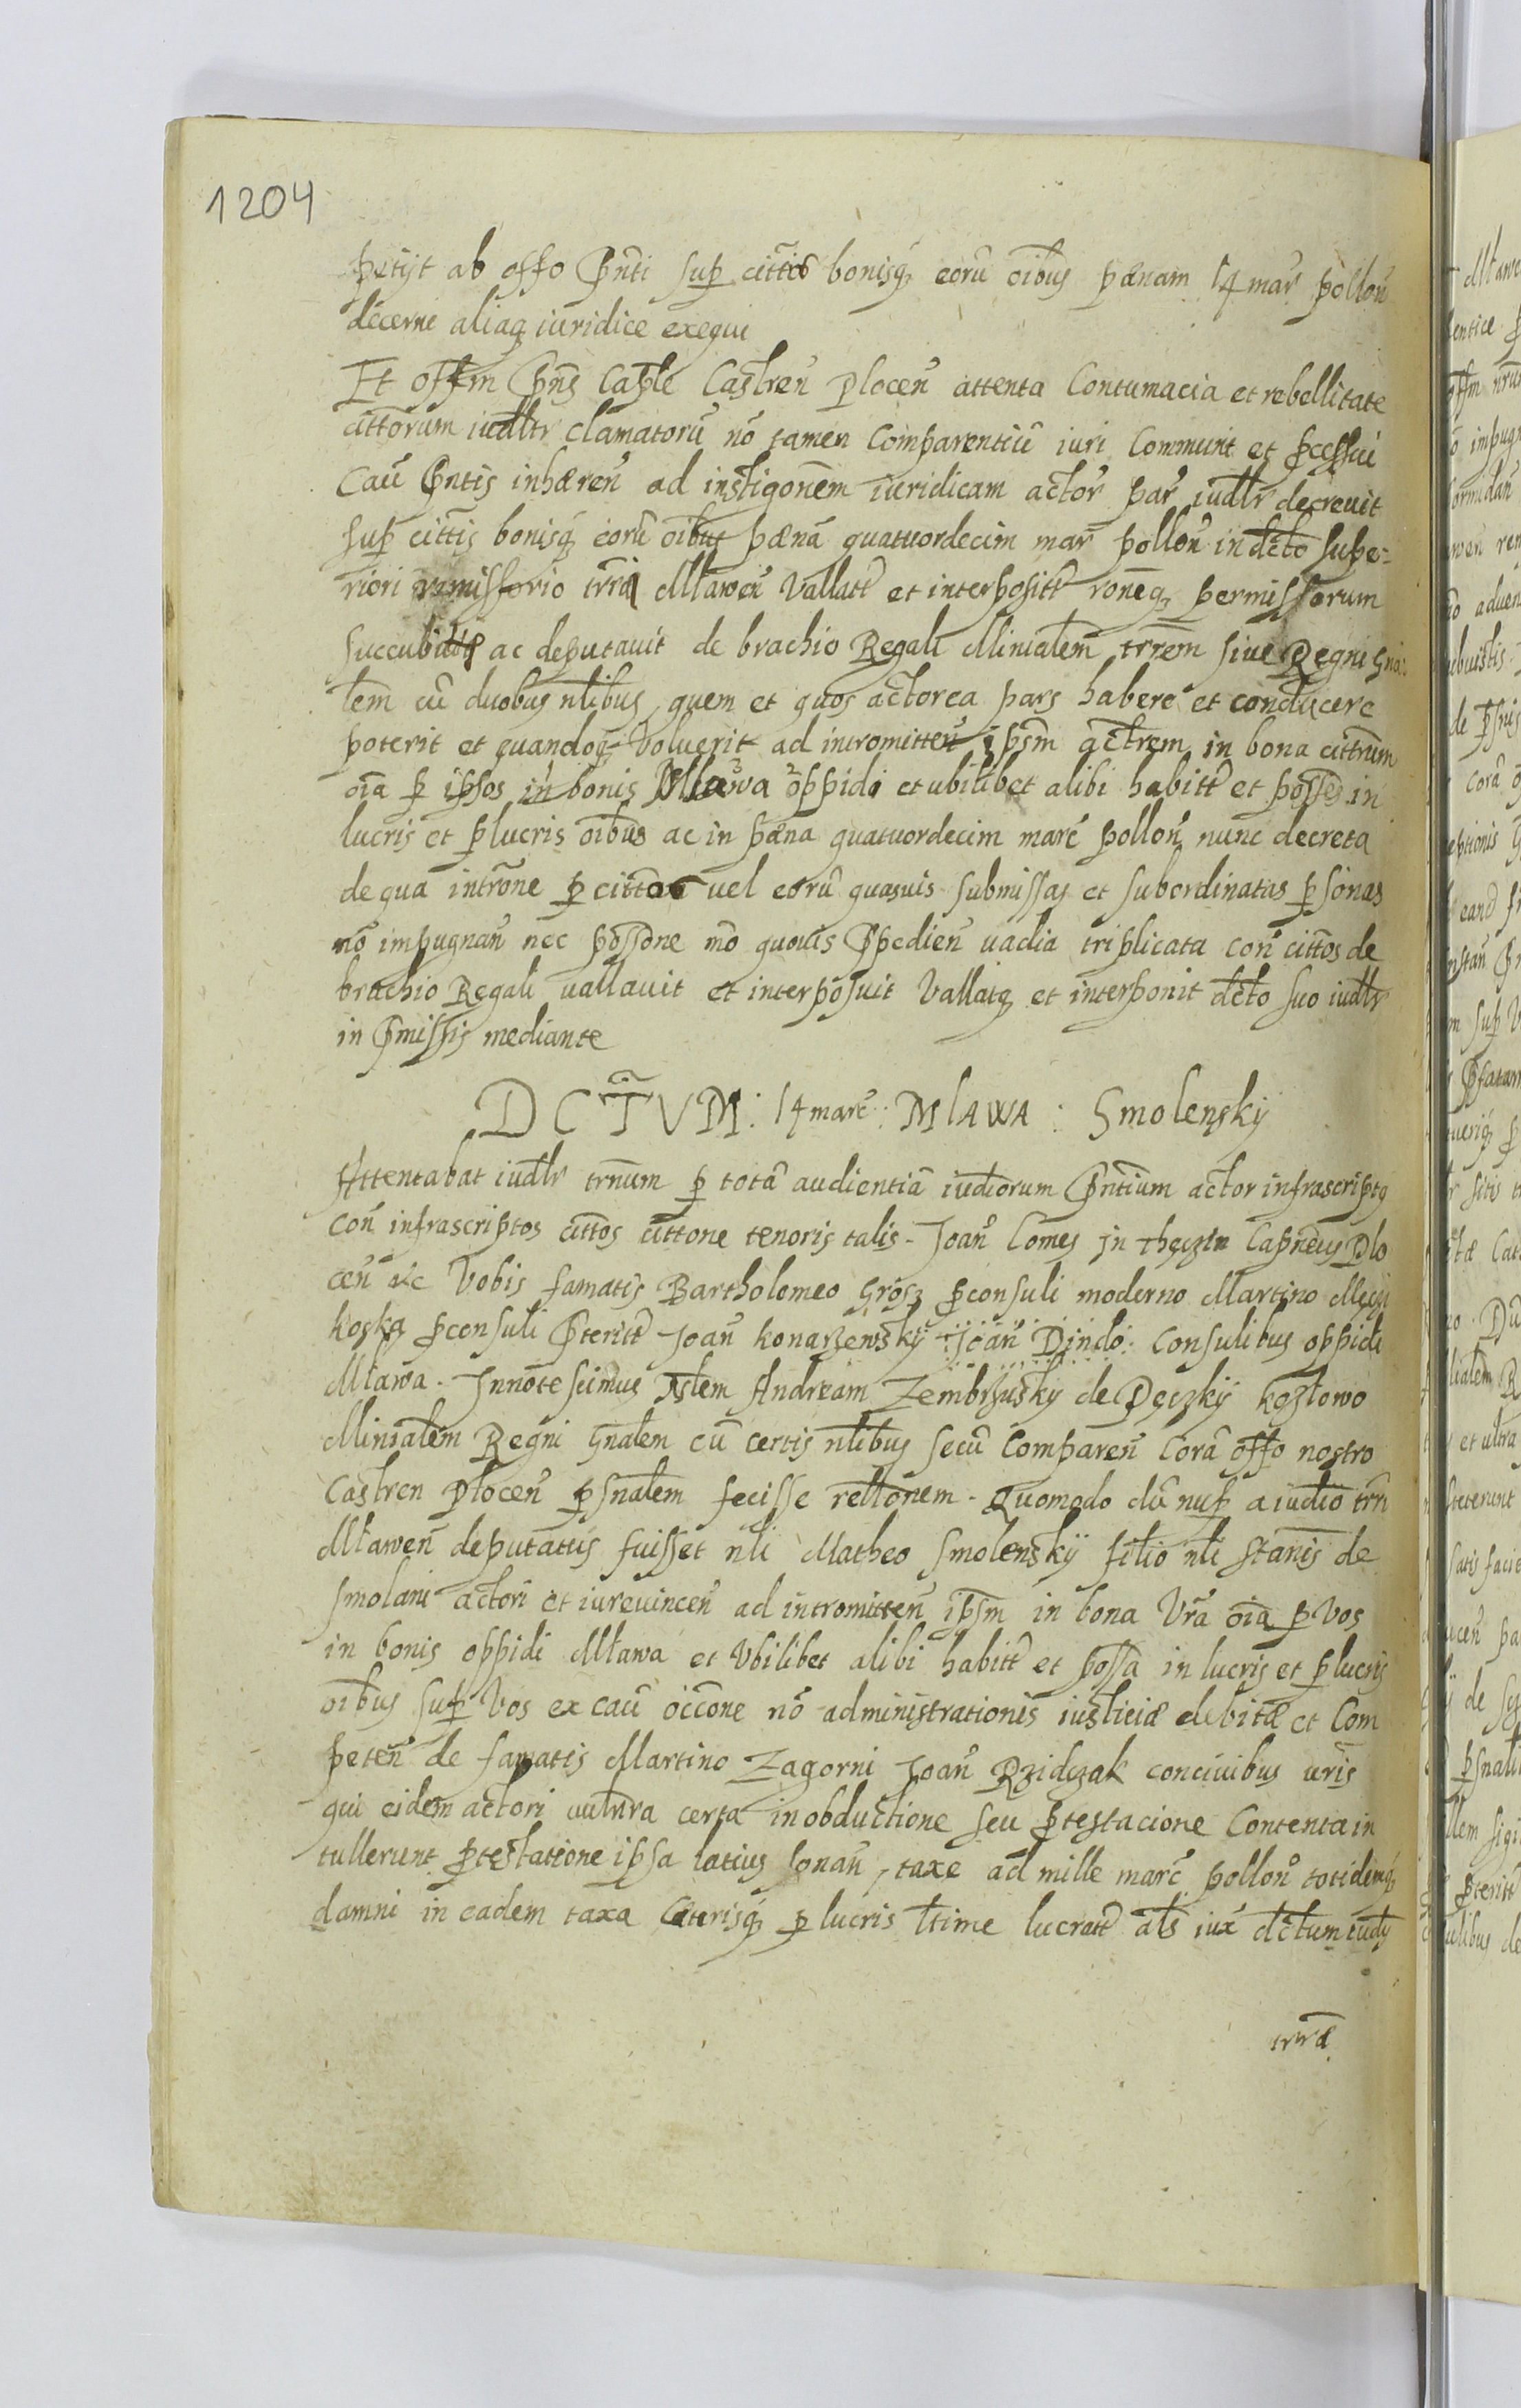 1204
petijt ab offo Pnti sup cittis bonisq eorū oibus pænam 14 mar pollon
decerni aliaq iuridice exequi
Et offm Pns Caple Castren Plocen attenta Contumacia et rebellitate
cittorum iudltr clamatorū nō tamen Comparentiū iuri Communi et pcessui
Cau Pntis inhæren ad instigonem iuridicam actor par iudlr decreuit
sup cittis bonisq eorū oibus pænā quatuordecim mar pollon in dcto supe=
riori remissorio trri Mławen Vallatt et interpositt ronēq permissorum
succubitis ac deputauit de brachio Regali Minialem trrem siue Regni Gna:
lem cū duobus nlibus, quem et quos actorea pars habere et conducere
poterit et quandoq Voluerit ad intromitten ipsm actrem in bona cittrum
oia p ipsos in bonis Mława oppidi et ubilibet alibi habitt et posse in
lucris et plucris oibus ac in pæna quatuordecim marc pollon nunc decreta
de qua introne p cittos vel eorū quasuis submissas et subordinatas psonas
nō impugnan nec possone mō quouis Ppedien uadia triplicata con cittos de
brachio Regali uallauit et interposuit Vallatq et interponit dcto suo iudlr
in Pmissis mediante
DCTVM: 14 marc: MlAWA: Smolenskÿ
Attentabat iudlr trnum p totā audientiā iudiorum Pntium actor infrascriptq
con infrascriptos cittos cittone tenoris talis - Joan Comes in Thęczin Capneus Plo
cen &c Vobis famatis Bartholomeo Grosz pconsuli moderno Martino Męczi
koska pconsuli Pteritt Joan konarzewskÿ Joan Dindo: Consulibus oppidi
Mława. Innotescimus Nlem Andream Zembrzuskÿ de Pęczkÿ kozłowo
Minialem Regni Gnalem cū certis nlibus secū Comparen Corā offo nostro
Castren Plocen psnalem fecisse rellonem. Quomodo dū nup a iudio trri
Mławen deputatus fuisset nli Matheo Smolenskÿ filio nli Stanis de
Smolani actori et iureuincen ad intromitten ipsm in bona Vra oia p Vos
in bonis oppidi Mława et Vbilibet alibi habitt et possa in lucris et plucris
oibus sup Vos ex cau occone nō administrationis iusticiæ debitæ et Com
peten de famatis Martino Zagorni Joan Rzidczak conciuibus uris
qui eidem actori uulnra certa in obductione seu ptestacione Contenta in
tullerunt ptestatione ipsa latius sonan, taxe ad mille marc pollon totidemq
damni in eadem taxa Cæterisq p lucris ltime lucratt als iux dctum iudÿ
trræ